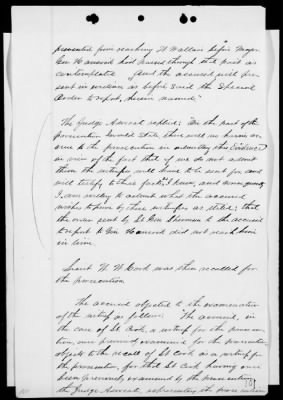 prevented from reaching Ft Wallace before Major
Gen Hancock had passed through that post as
contemplated. And the accused will pre-
sent in evidence as before said the Special
Order to report, herein named"
The Judge Advocate replied; "On the part of the
prosecution I would state there will no harm ac-
crue to the prosecution in admitting this Evidence
in view of the fact that if we do not admit
them the witnesses will have to be sent for and
will testify to these facts I know, and
I am willing to admit what the accused
wishes to prove by these witnesses as stated; that
the order sent by Lt Gen Sherman to the accused
to report to Gen Hancock did not reach him
in time.
Lieut W. W. Cook was then recalled for
the prosecution
The accused objected to the examination
of the witness as follows: "The accused, in
the case of Lt Cook, a witness for the prosecu-
tion, once examined for the prosecution
objects to the recall of Lt Cook as a witness for
the prosecution, for that Lt Cook having once
been previously examined by the prosecution
the Judge Advocate, representing the prosecution